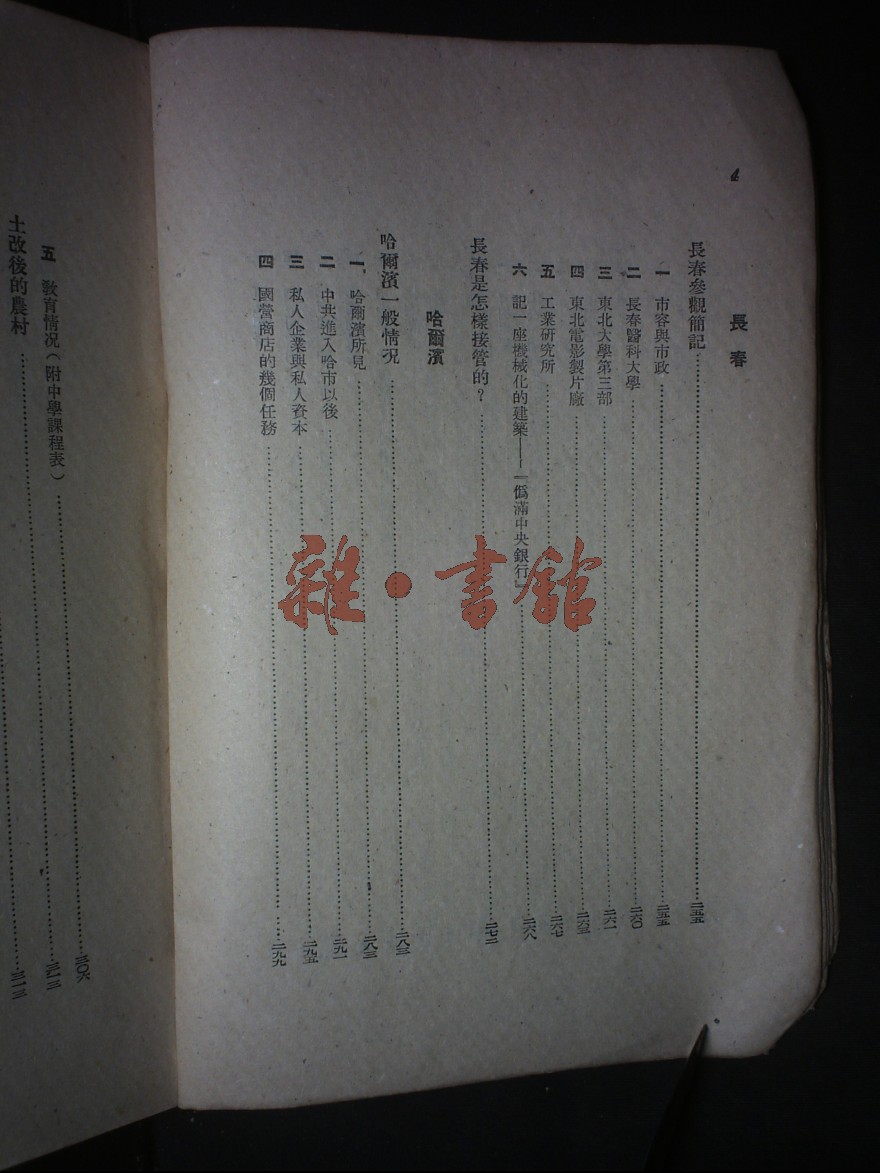 4
長春
長春參觀簡記……二五五
一 市容與市政……二五五
二 長春醫科大學……二六〇
三 東北大學第三部……二六一
四 東北電影製片廠……二六三
五 工業研究所……二六七
六 記一座機械化的建築——『僞滿中央銀行』……二六八
長春是怎樣接管的？……二七二
哈爾濱
哈爾濱一般情況……二八三
一 哈爾濱所見……二八三
二 中共進入哈市以後……二九一
三 私人企業與私人資本……二九五
四 國營商店的幾個任務……二九九
三〇六
五 教育情況（附中學課程表）……三一三
土改後的農村……三一三
雜·書館